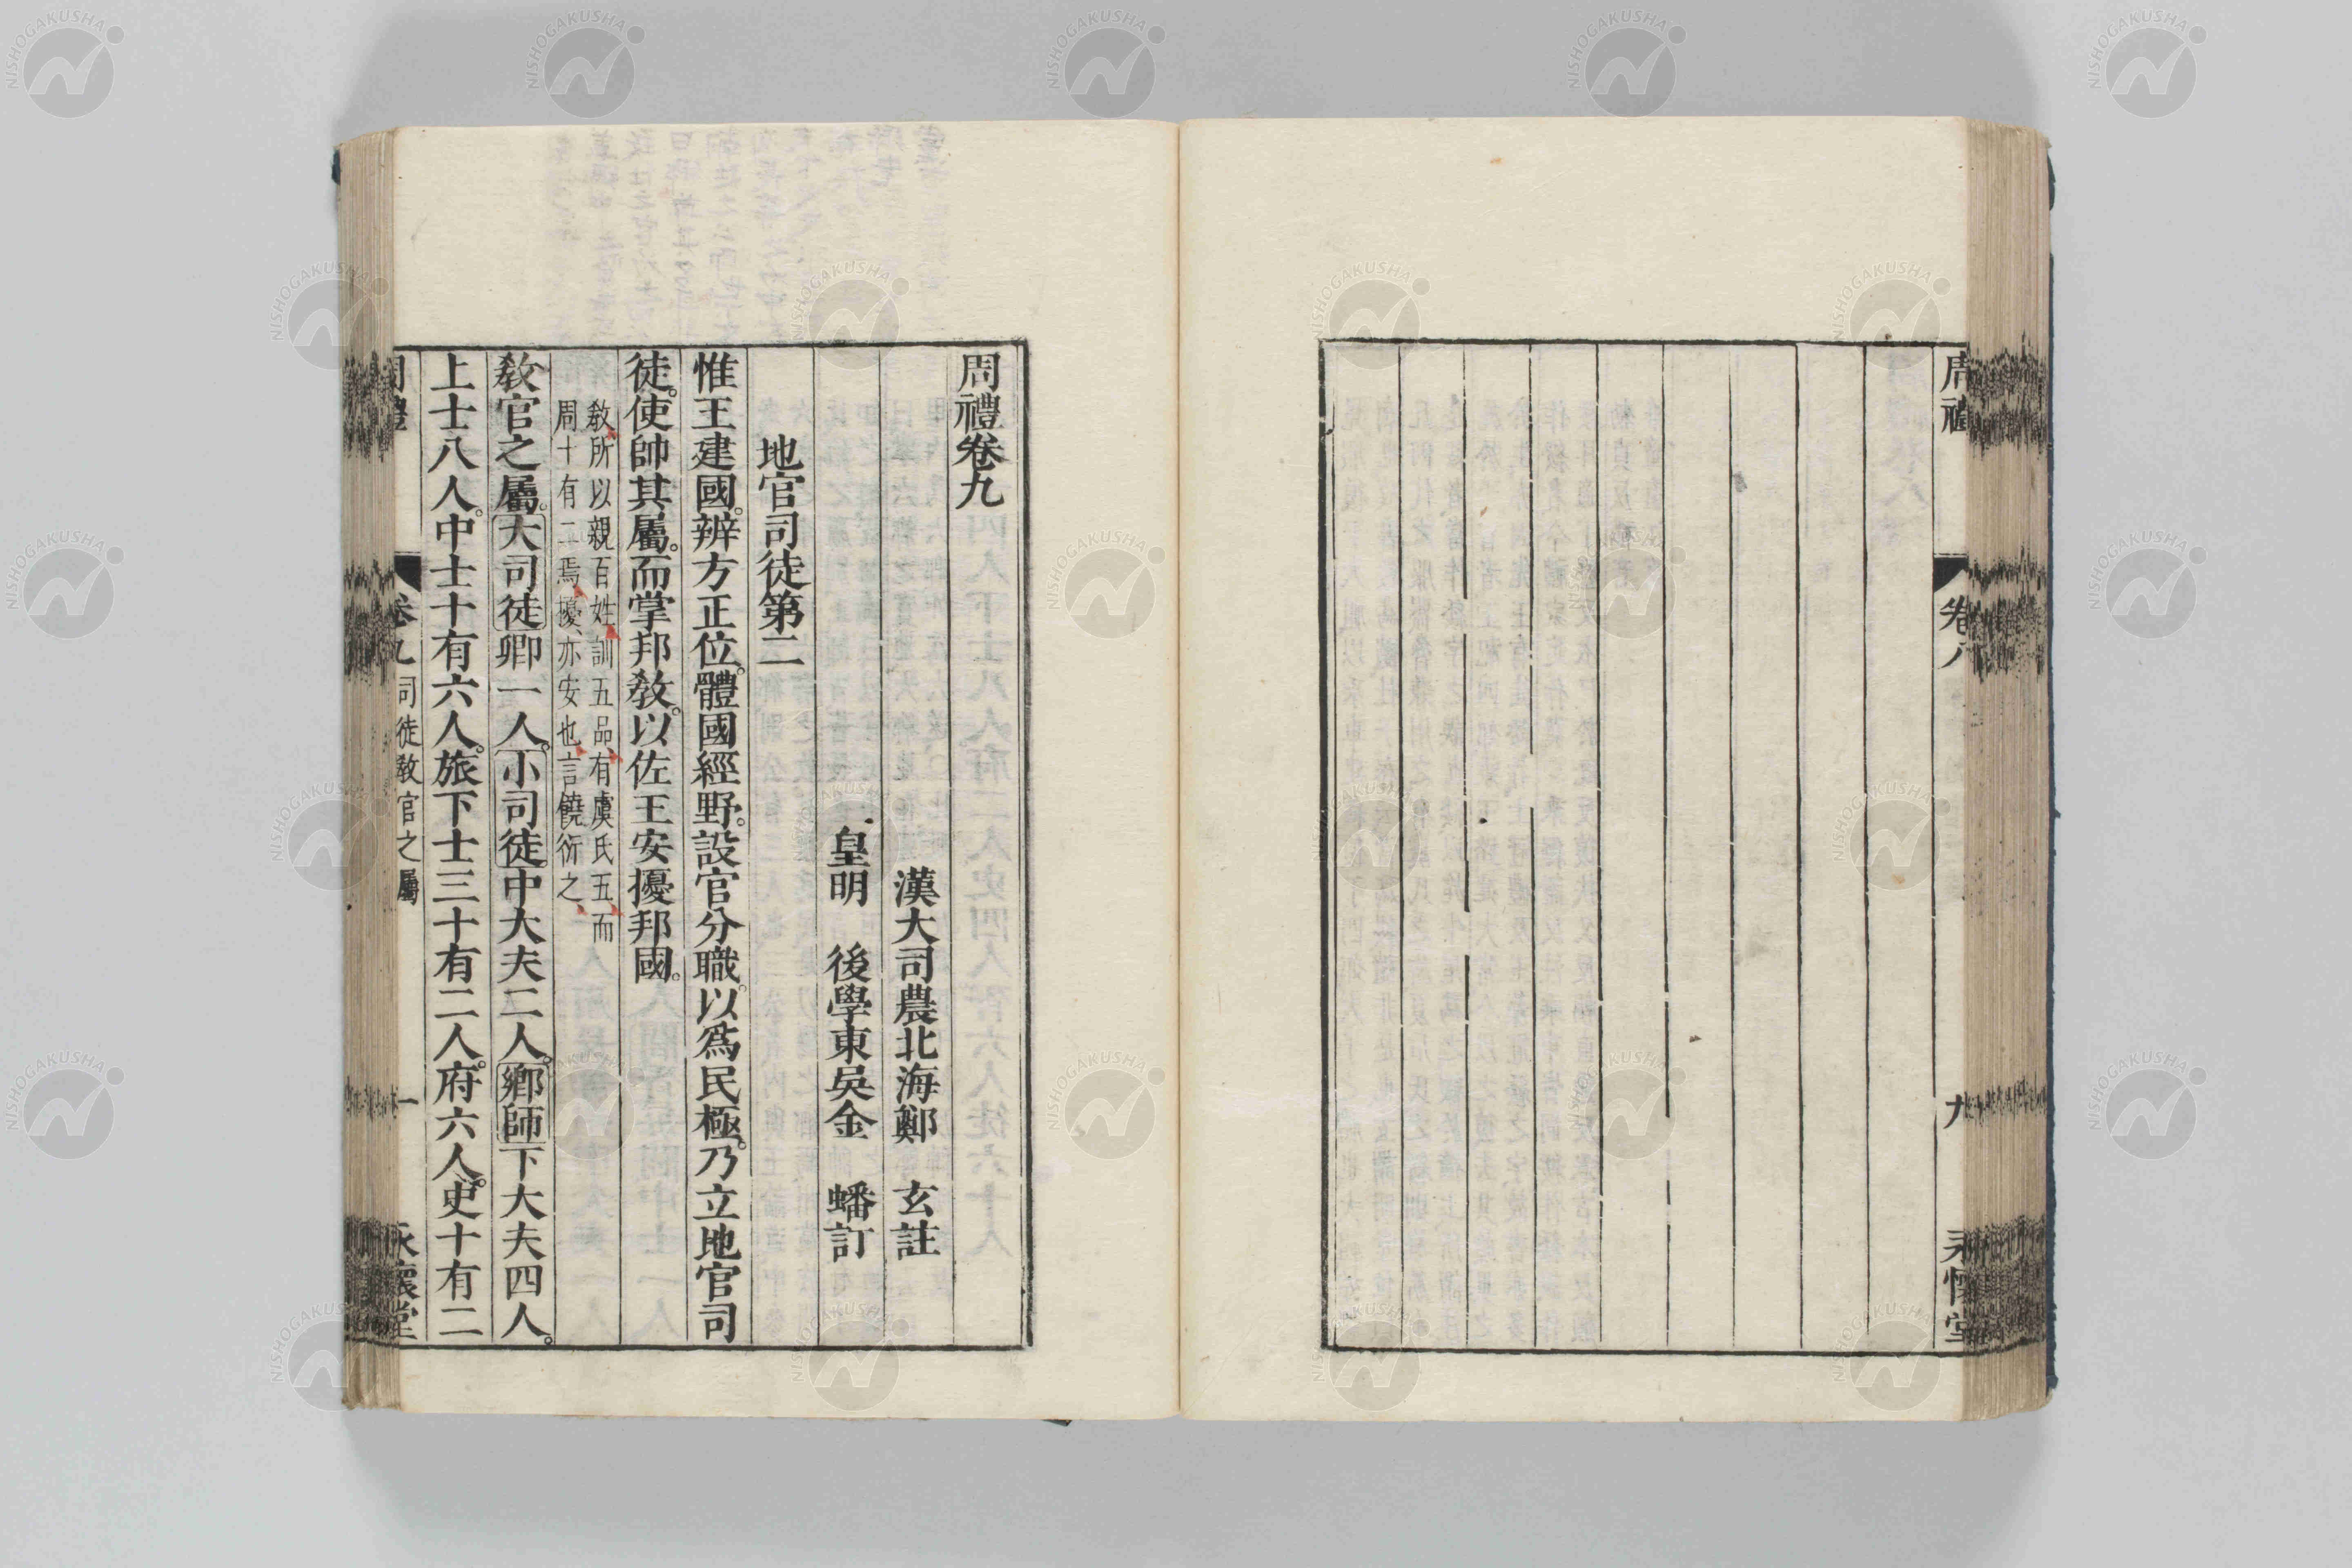 周禮
卷八
九
永懷堂
周禮卷九
漢大司農北海鄭　玄註
皇明　後學東吳金　蟠訂
地官司徒第二
惟王建國。辨方正位。體國經野。設官分職。以爲民極。乃立地官司
徒。使帥其屬。而掌邦敎。以佐王安擾邦國。
敎所以親百姓訓五品有虞氏五而
周十有二焉擾亦安也言饒衍之
敎官之屬。大司徒卿一人。小司徒中大夫二人。鄕師下大夫四人。
上士八人。中士十有六人。旅下士三十有二人。府六人。史十有二
周禮
卷九
司徒敎官之屬
一
永懷堂
NISHOGAKUSHA